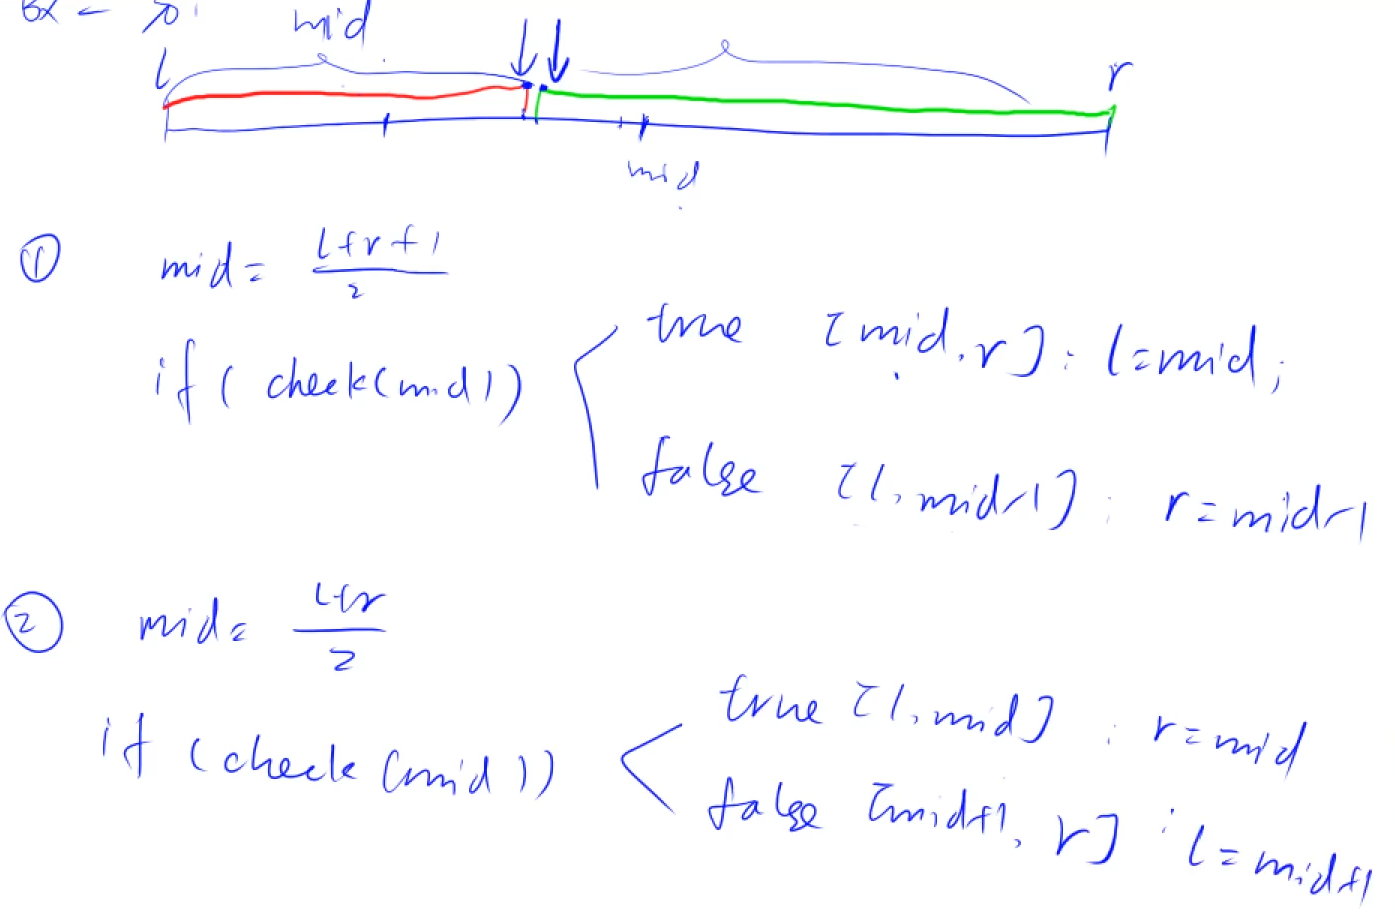 mid
l
r
mid
① mid = (l+r+1)/2
if ( check(mid))
true [mid, r] : l=mid;
false [l, mid-1] : r=mid-1
② mid = (l+r)/2
if (check (mid))
true [l, mid] : r=mid
false [mid+1, r] : l=mid+1